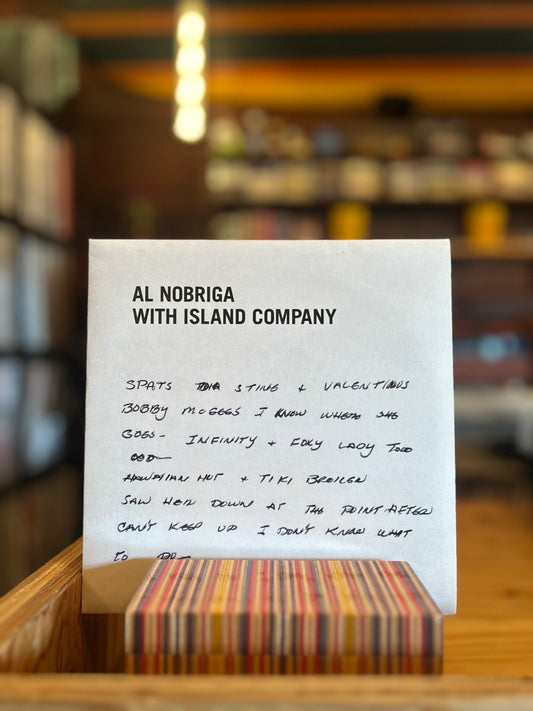 AL NOBRIGA
WITH ISLAND COMPANY
SPATS STING + VALENTINOS
BOBBY McGEES I KNOW WHERE SHE
GOES- INFINITY + FOXY LADY TOO
HAWAIIAN HUT + TIKI BROILER
SAW HER DOWN AT THE POINT AFTER
CAN'T KEEP UP I DON'T KNOW WHAT
TO DO-